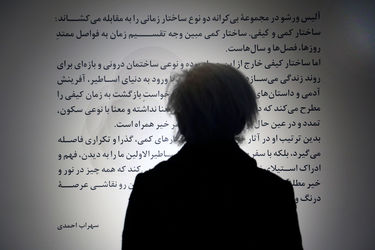 آلیس ورشو در مجموعهٔ بی‌کرانه دو نوع ساختار زمانی را به مقابله می‌کشاند:
ساختار کمی و کیفی. ساختار کمی مبین وجه تقسیم زمان به فواصل ممتدِ
روزها، فصل‌ها و سال‌هاست.
اما ساختار کیفی خارج از این ده و نوعی ساختمان درونی و بازه‌ای برای
روند زندگی می‌سازد رود به دنیای اساطیر، آفرینش
آدمی و داستان‌های خواست بازگشت به زمان کیفی را
مطرح می‌کند که د عنا نداشته و معنا با نوعی سکون،
تمدد و در عین حال خبر همراه است.
بدین ترتیب او در آثار های کمی، گذرا و تکراری فاصله
می‌گیرد، بلکه با سفر ساطیر الاولین ما را به دیدن، فهم و
ادراک استیلای کند که همه چیز در نور و
خبر مطلق رو نقاشی عرصهٔ
درنگ و
سهراب احمدی